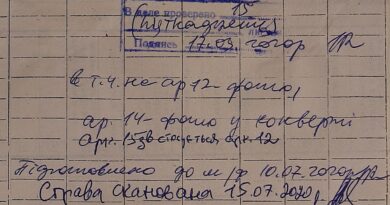 В деле проверено 15
(пʼятнадцять)
Подпись 17.03.2020р
в т.ч. на ар 12-фото,
ар. 14-фото у конверті
арк. 15зв стосується арк. 12
Підготовлено до м/ф 10.07.2020р
Справа сканована 15.07.2020р